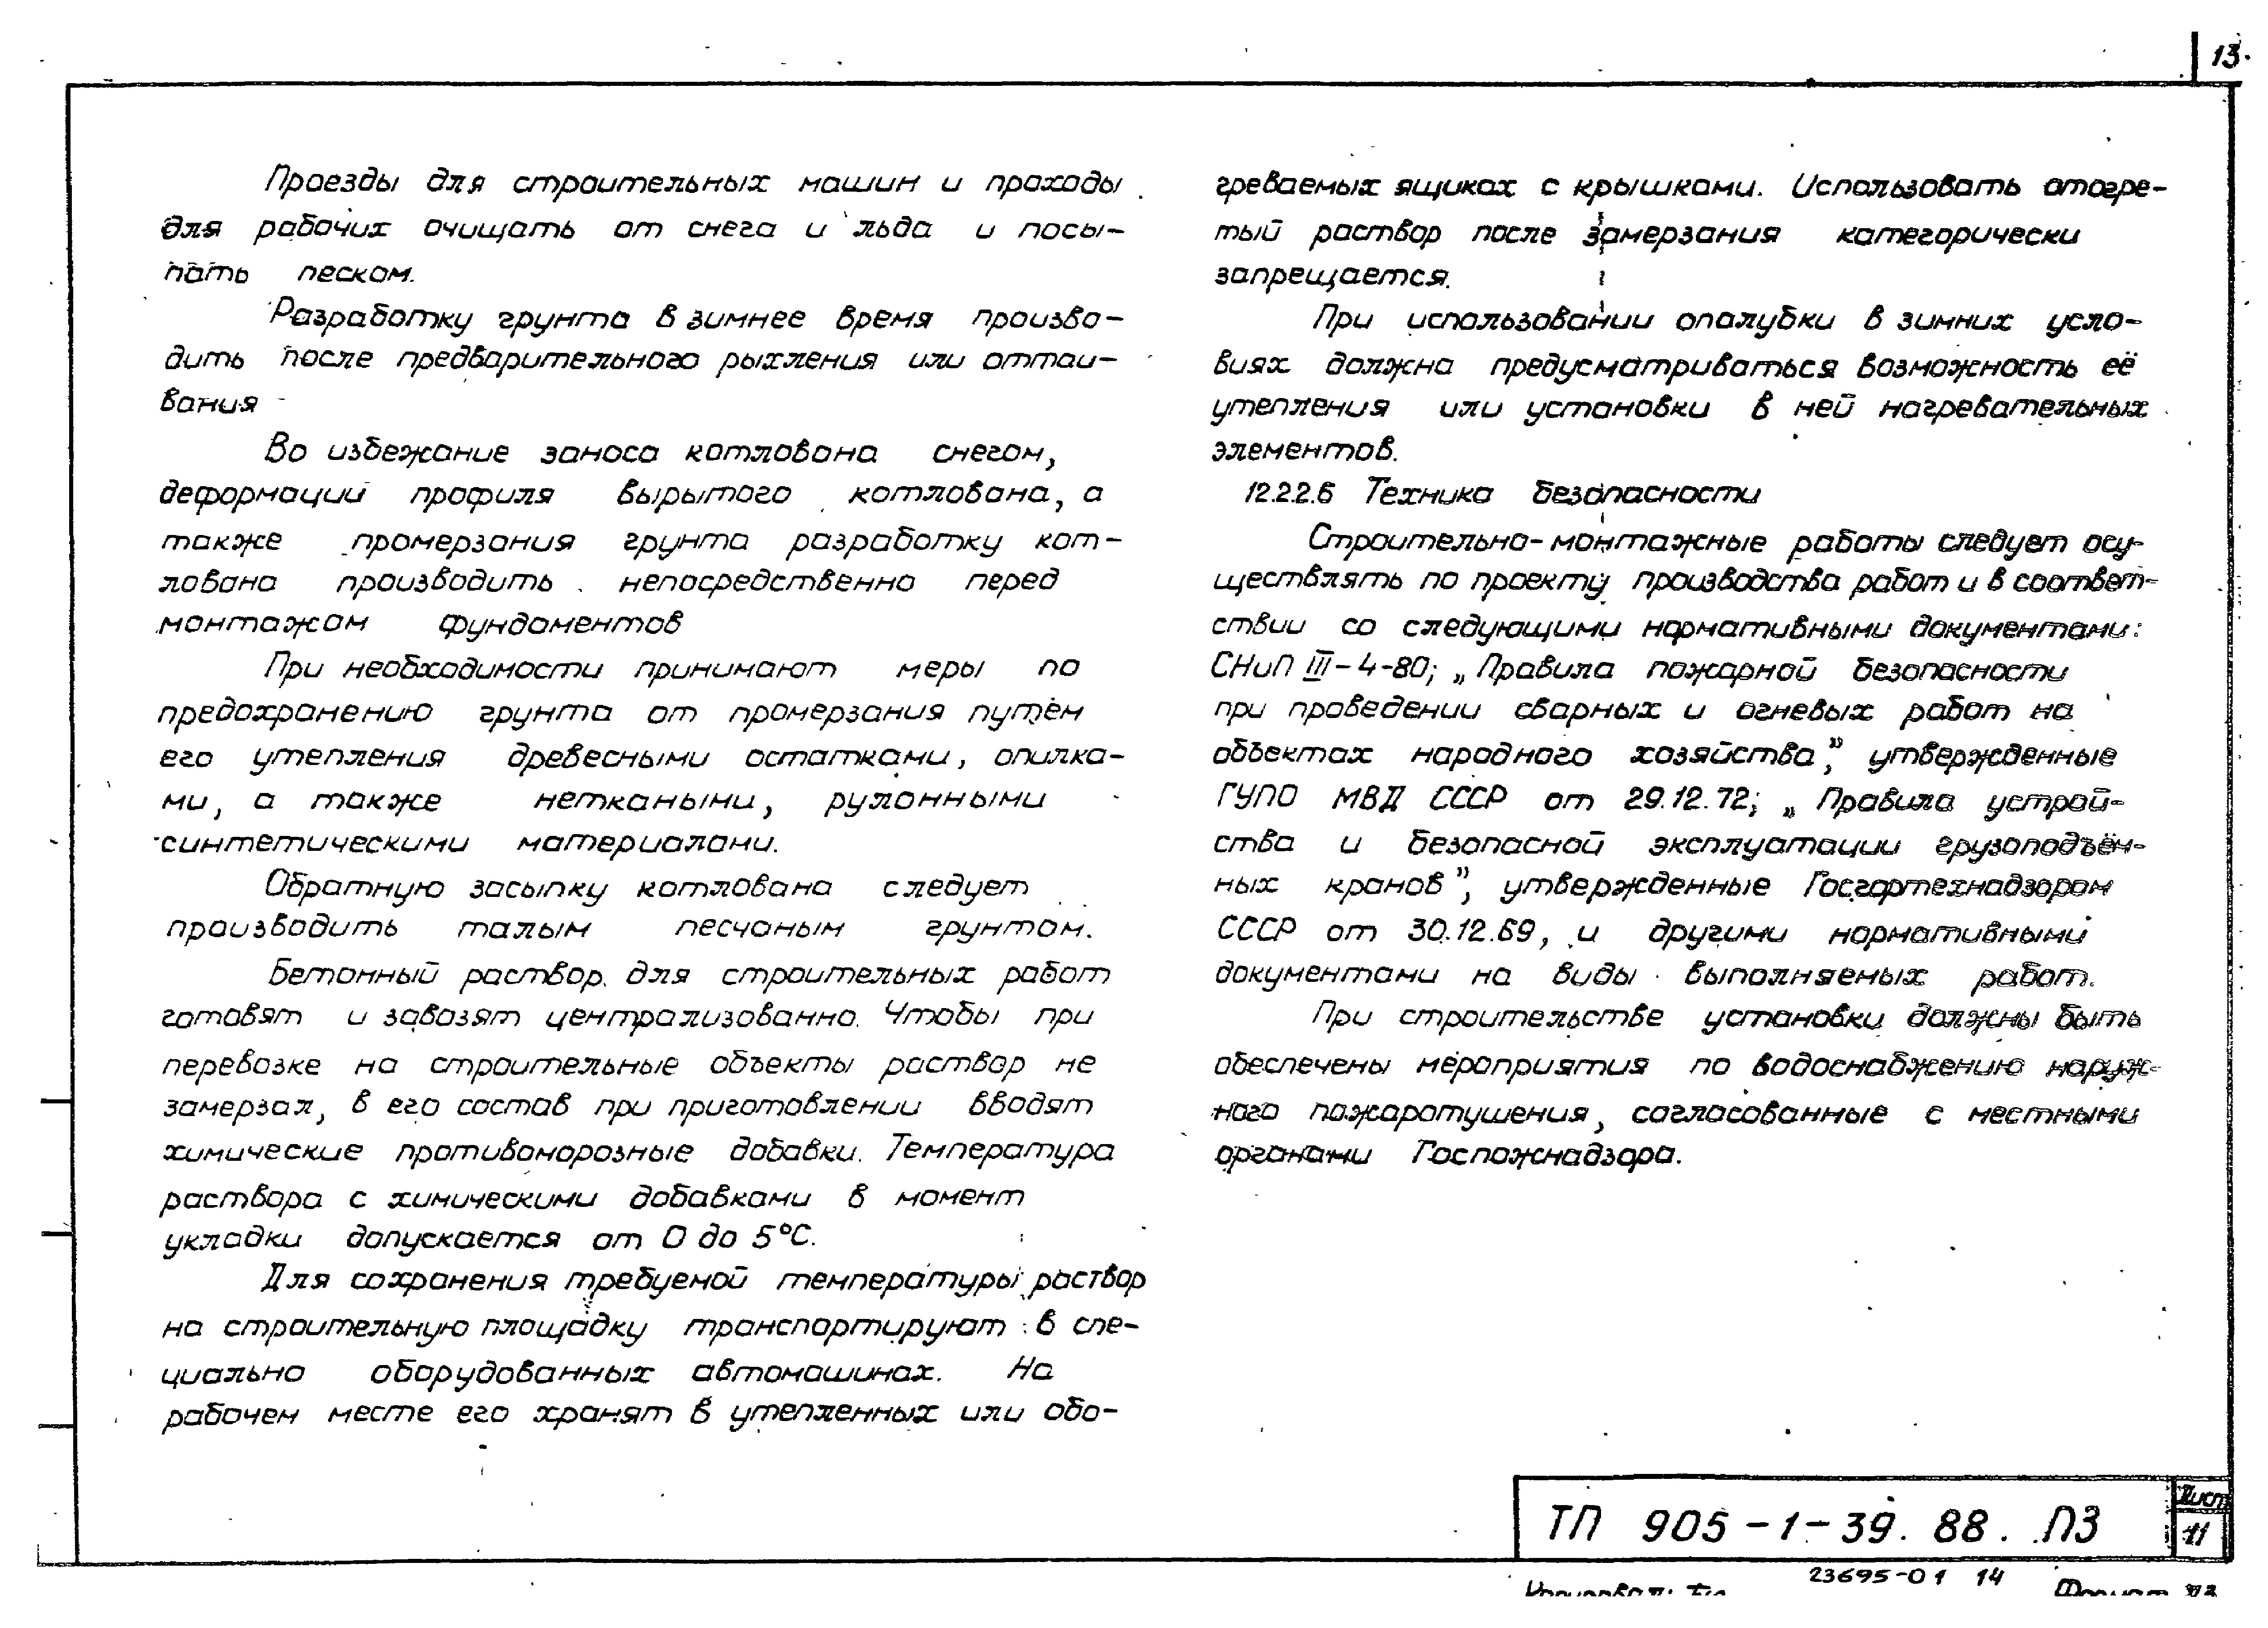 13
Проезды для строительных машин и проходы
для рабочих очищать от снега и льда и посы-
пать песком.
Разработку грунта в зимнее время произво-
дить после предварительного рыхления или оттаи-
вания
Во избежание заноса котлована снегом,
деформации профиля вырытого котлована, а
также промерзания грунта разработку кот-
лована производить непосредственно перед
монтажом фундаментов
При необходимости принимают меры по
предохранению грунта от промерзания путём
его утепления древесными остатками, опилка-
ми, а также неткаными, рулонными
синтетическими материалами.
Обратную засыпку котлована следует
производить талым песчаным грунтом.
Бетонный раствор для строительных работ
готовят и завозят централизованно. Чтобы при
перевозке на строительные объекты раствор не
замерзал, в его состав при приготовлении вводят
химические противоморозные добавки. Температура
раствора с химическими добавками в момент
укладки допускается от 0 до 5°С.
Для сохранения требуемой температуры раствор
на строительную площадку транспортируют в спе-
циально оборудованных автомашинах. На
рабочем месте его хранят в утепленных или обо-
греваемых ящиках с крышками. Использовать отогре-
тый раствор после замерзания категорически
запрещается.
При использовании опалубки в зимних усло-
виях должна предусматриваться возможность её
утепления или установки в ней нагревательных
элементов.
12.2.2.6 Техника безопасности
Строительно-монтажные работы следует осу-
ществлять по проекту производства работ и в соответ-
ствии со следующими нормативными документами:
СНиП III-4-80; „Правила пожарной безопасности
при проведении сварных и огневых работ на
объектах народного хозяйства", утвержденные
ГУПО МВД СССР от 29.12.72; „Правила устрой-
ства и безопасной эксплуатации грузоподъём-
ных кранов", утвержденные Госгортехнадзором
СССР от 30.12.69, и другими нормативными
документами на виды выполняемых работ.
При строительстве установки должны быть
обеспечены мероприятия по водоснабжению наруж-
ного пожаротушения, согласованные с местными
органами Госпожнадзора.
ТП 905-1-39.88. ПЗ
Лист
11
23695-01 14